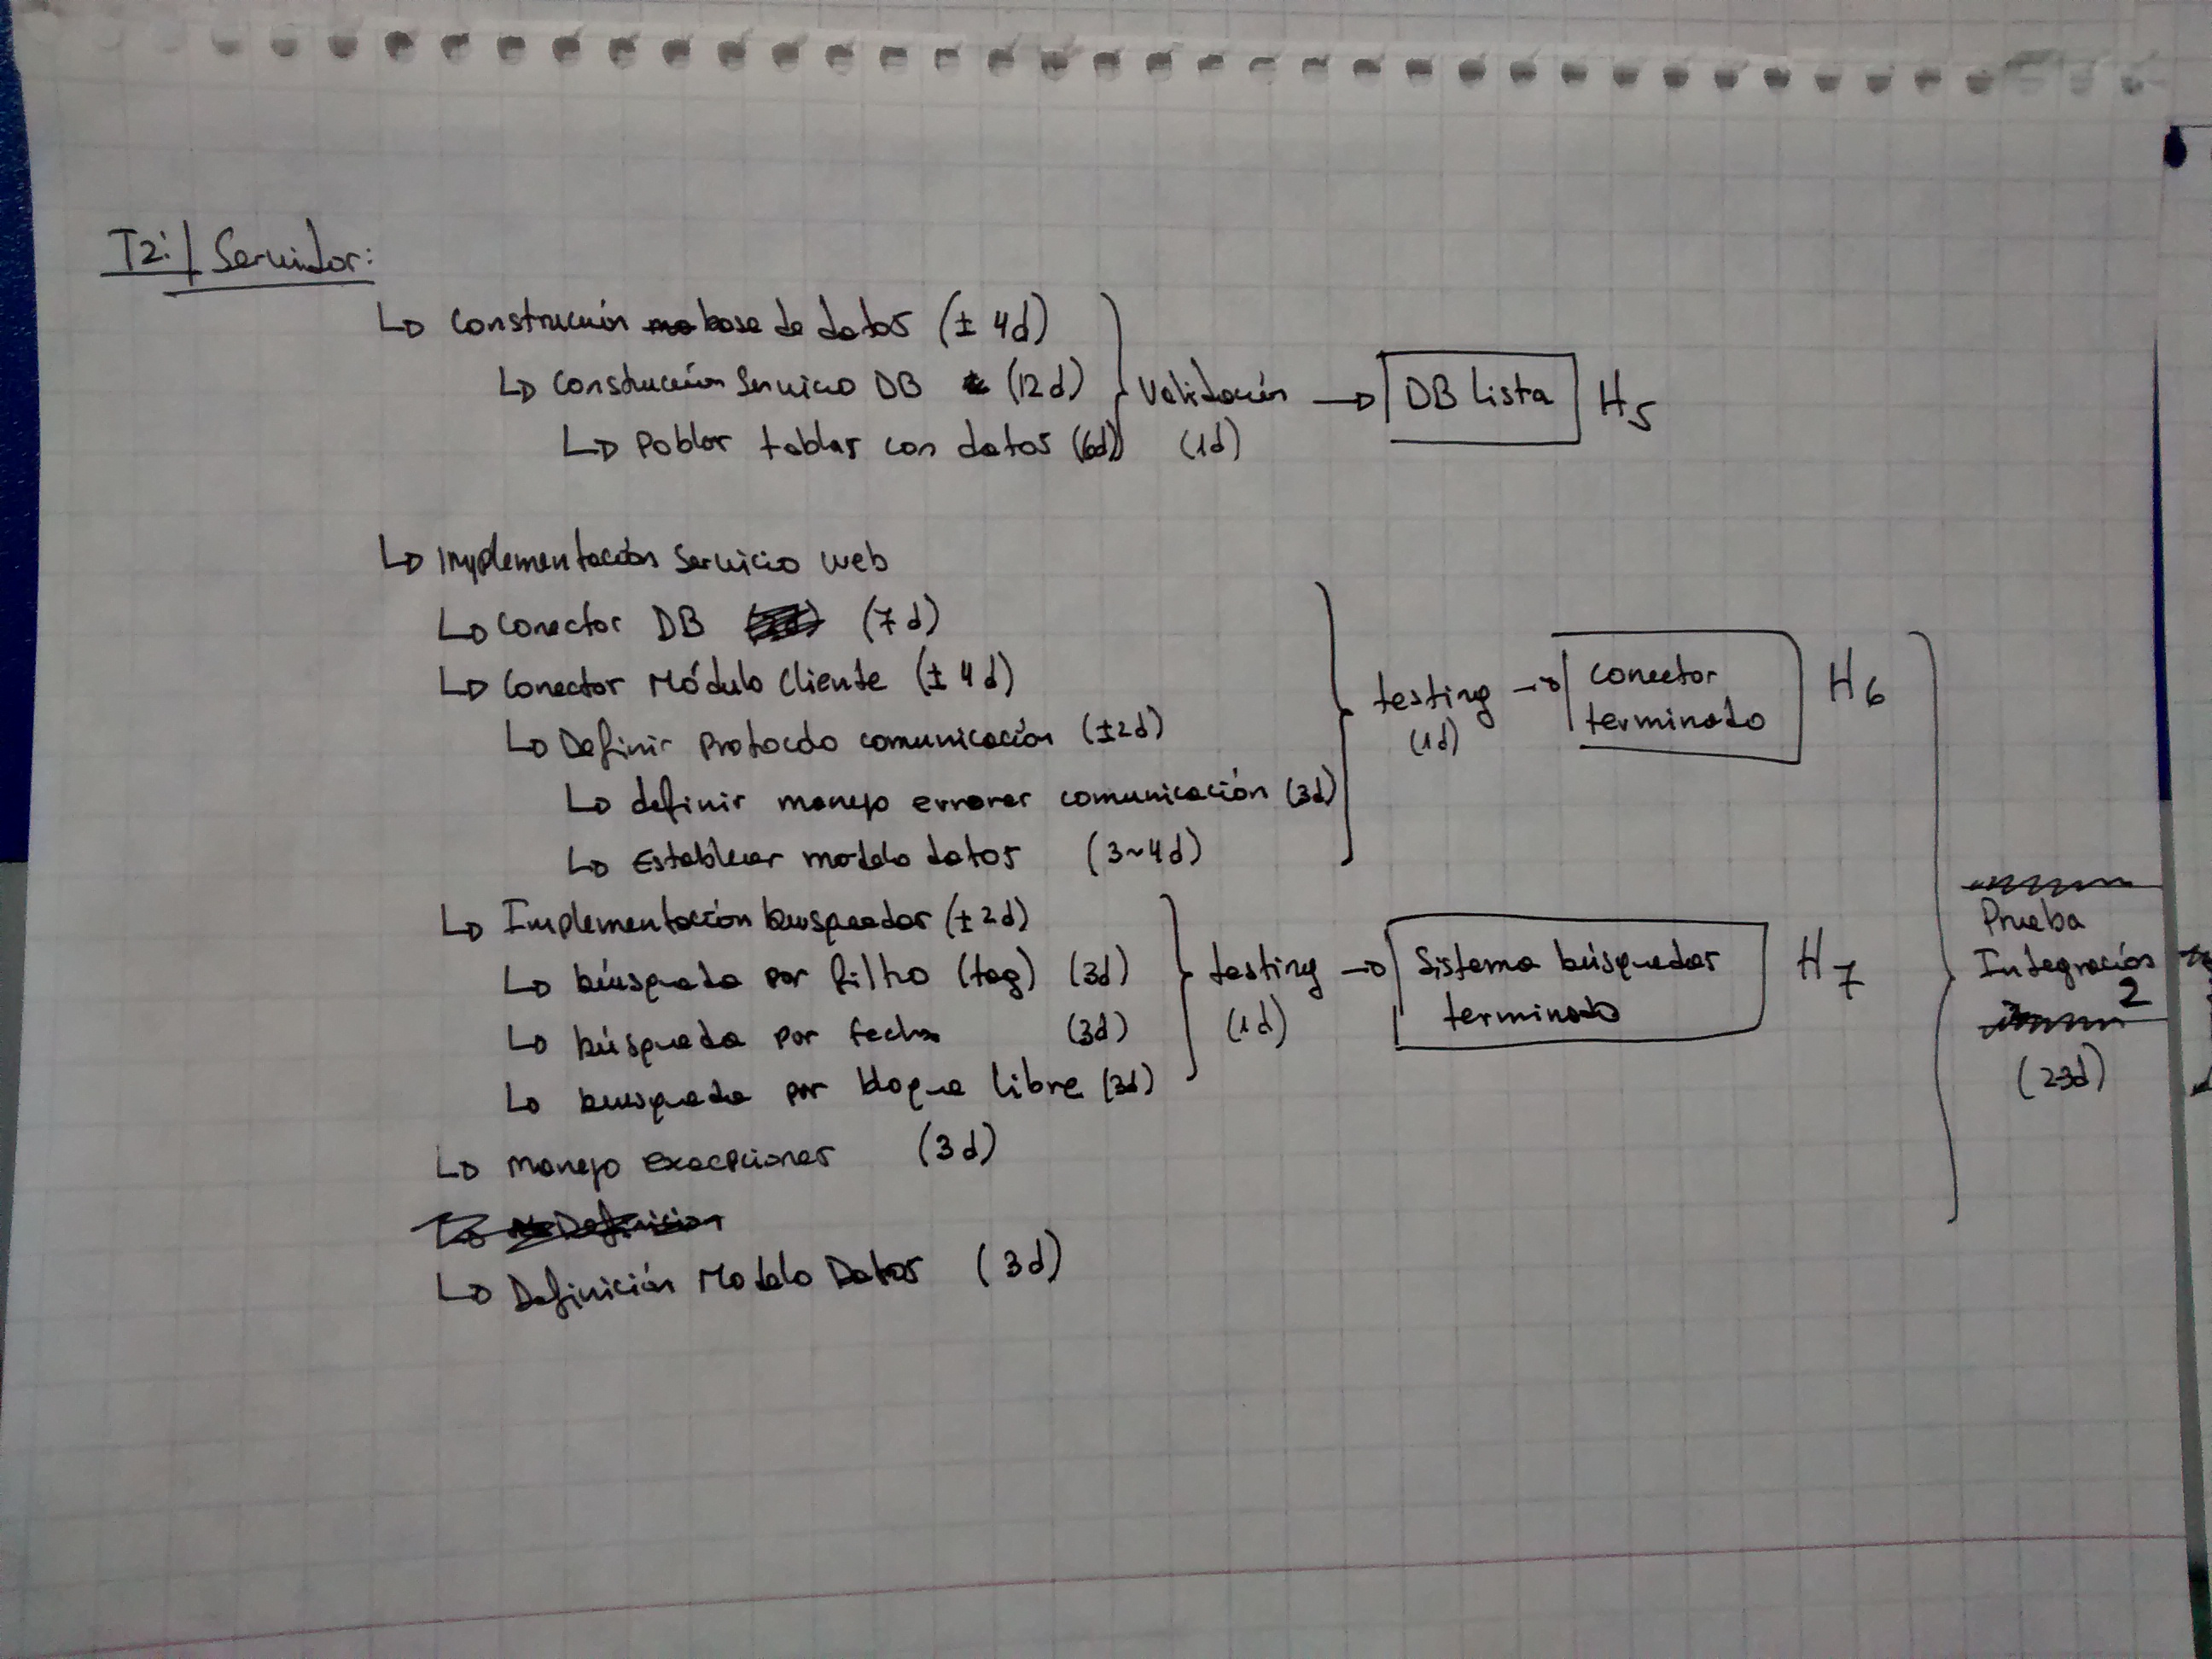 T2:| Servidor:
↳ Construcción base de datos (± 4d)
↳ Construcción Servicio DB (12d)
↳ Poblar tablas con datos (6d)
Validación
(1d)
→ DB Lista H5
↳ Implementación Servicio Web
↳ Conector DB (7d)
↳ Conector Módulo Cliente (± 4d)
↳ Definir Protocolo comunicación (±2d)
↳ definir manejo errores comunicación (3d)
↳ Establecer modelo datos (3~4d)
testing → conector
(1d)
terminado
H6
↳ Implementación busqueador (± 2d)
↳ búsqueda por filtro (tag) (3d)
↳ búsqueda por fecha (3d)
↳ busqueda por bloque libre (3d)
testing → Sistema búsquedas
(1d)
terminado
H7
↳ manejo excepciones (3d)
↳ Definición Modelo Datos (3d)
Prueba
Integración
2
(2-3d)